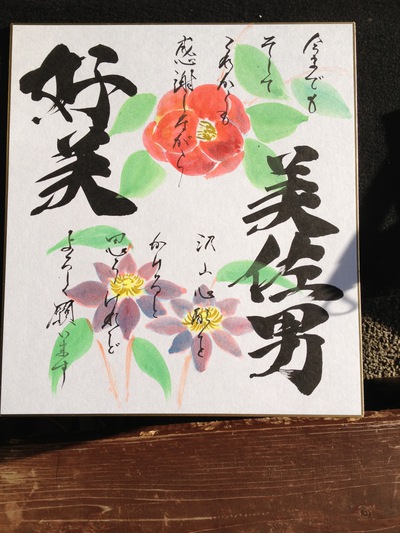 今までも
そして
これからも
感謝しながら
沢山心配を
かけると
思うけれど
よろしく願います
美佐男
好美